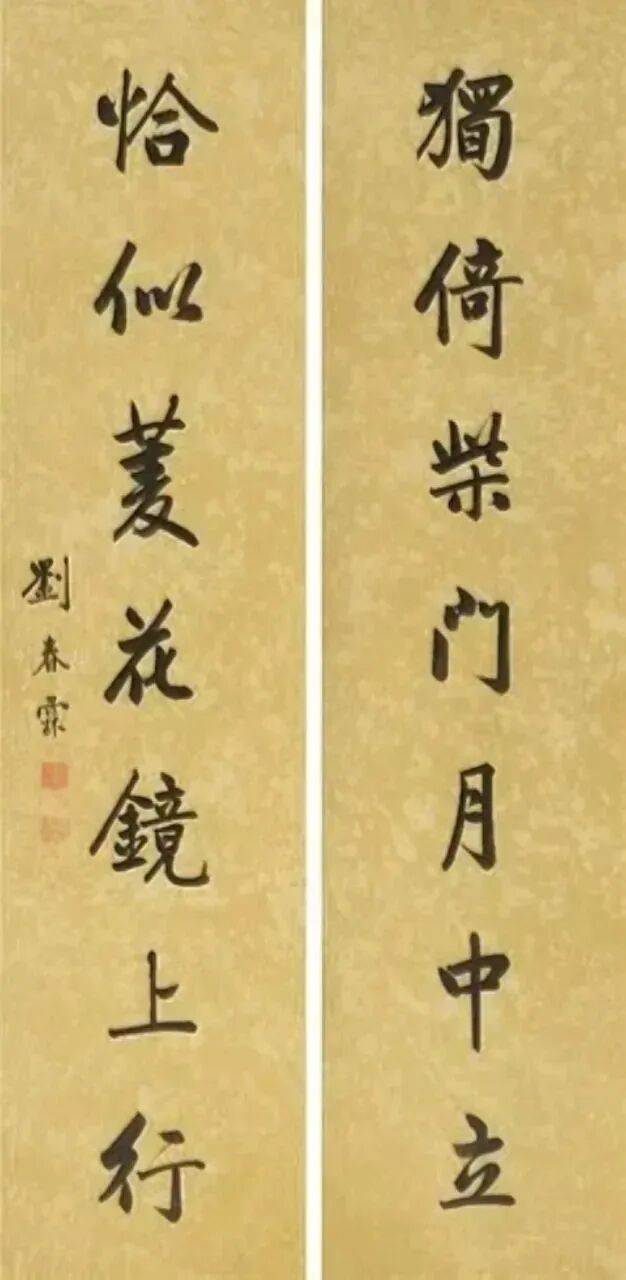 獨倚柴門月中立
恰似菱花鏡上行
劉春霖